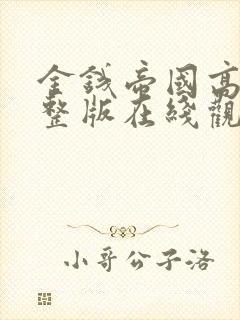 金錢帝國高
整版在綫觀
小哥公子洛